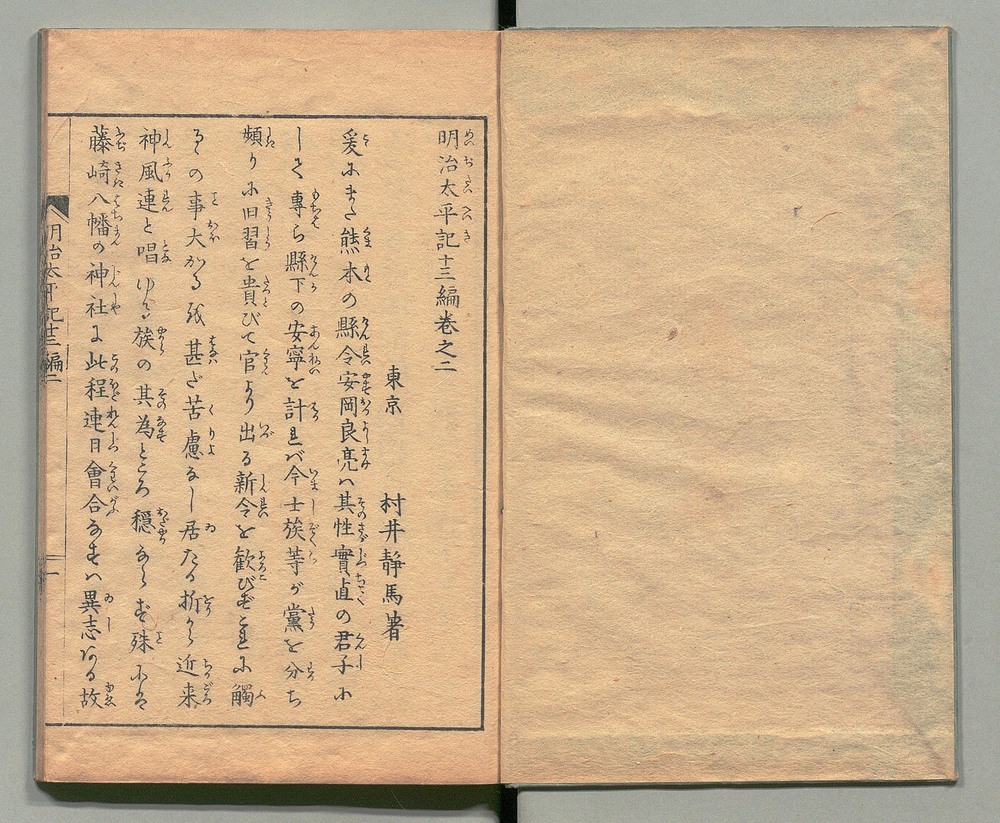 明治太平記十三編巻之二
東京 村井静馬著
爰にまた熊本の縣令安岡良亮ハ其性實直の君子に
して專ら縣下の安寧を計れバ今士族等が黨を分ち
頻りに旧習を貴びて官より出る新令を歓びずこれに觸
るの事大かる越甚だ苦慮なし居たる折から近来
神風連と唱ゆる族の其為ところ穏ならず殊に
藤崎八幡の神社に此程連日會合なすハ異志ある故
明治太平記十三編二 一